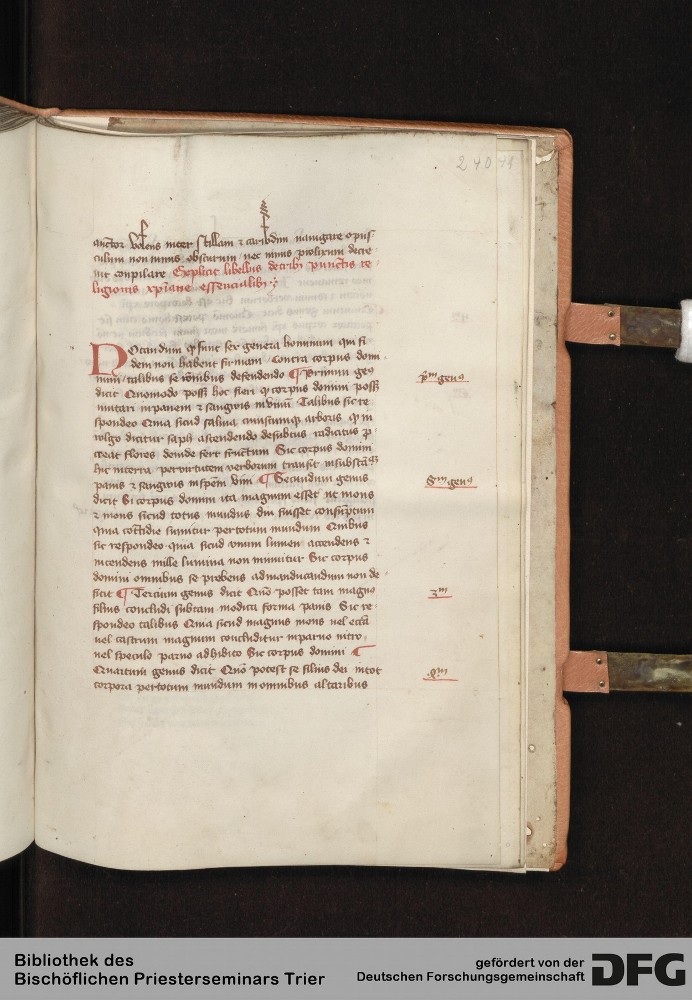 240 71
auctor volens inter scillam ⁊ caribdim nauigare opus
culum non nimis obscurum / nec nimis prolixum decre
uit conpilare Explicit libellus de trib3 punctis re
ligionis xp̄iane essencialib3
Notandum qͥ sunt sex genera hominum qui fi
dem non habent firmam / Contra corpus domi
talibus se defendendo ¶ Primum genꝰ
dicit Quomodo poss3 hoc fieri ꝙ corpus domini poss3
mutari in panem ⁊ sangwis in vinum Talibus sic re
spondeo Quia sicud saliua cuiuscumqꝫ arboris
wlgo dicitur saph ascendendo desubtus radicitus
creat flores deinde fert fructum Sic corpus domini
hic in terra per virtutem verborum transit in
panis ⁊ sangwis in spēm vini ¶ Secundum genus
dicit Si corpus domini ita magnum esset ut mons
⁊ mons sicud totus mundus diu fuisset consūptum
quia cottidie sumitur per totum mundum Quibus
sic respondeo quia sicud vnum lumen accendens ⁊
incendens mille lumina non minuitur Sic corpus
domini omnibus se prebens ad manducandum non de
ficit ¶ Tercium genus dicit Quō posset tam magnꝰ
filius concludi sub tam modica forma panis Sic re
spondeo talibus Quia sicud magnus mons uel
uel castrum magnum concluditur in paruo vitro
uel speculo paruo adhibito Sic corpus domini ¶
Quartum genus dicit Quō potest se filius dei in tot
corpora per totum mundum in omnibus altaribus
pͫ genꝰ
Sͫ genꝰ
3ͫ
4ͫ
Bibliothek des
Bischöflichen Priesterseminars Trier
gefördert von der
Deutschen Forschungsgemeinschaft
DFG